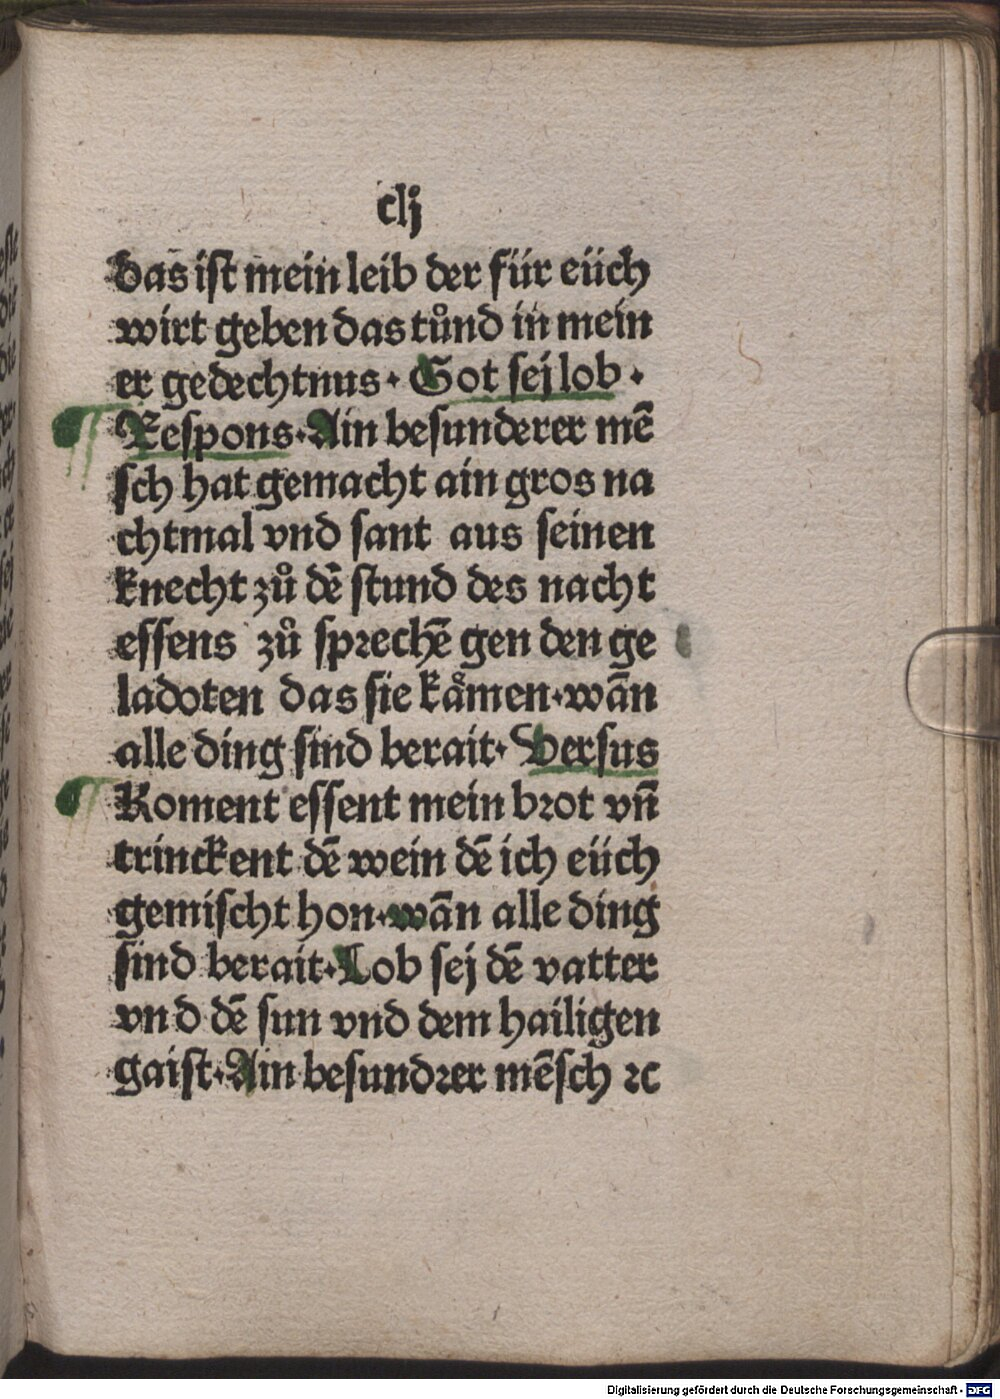 clj
das ist mein leib der für eüch
wirt geben das tůnd in mein
er gedechtnus · Got sej lob ·
Respons · Ain besunderer mē
sch hat gemacht ain gros na
chtmal vnd sant aus seinen
knecht zů dē stund des nacht
essens zů sprechē gen den ge
ladoten das sie kåmen · wān
alle ding sind berait · Versus
Koment essent mein brot vn̄
trinckent dē wein dē ich eüch
gemischt hon · wān alle ding
sind berait · Lob sej dē vatter
vnd dē sun vnd dem hailigen
gaist · Ain besundrer mēsch ꝛc
Digitalisierung gefördert durch die Deutsche Forschungsgemeinschaft - DFG